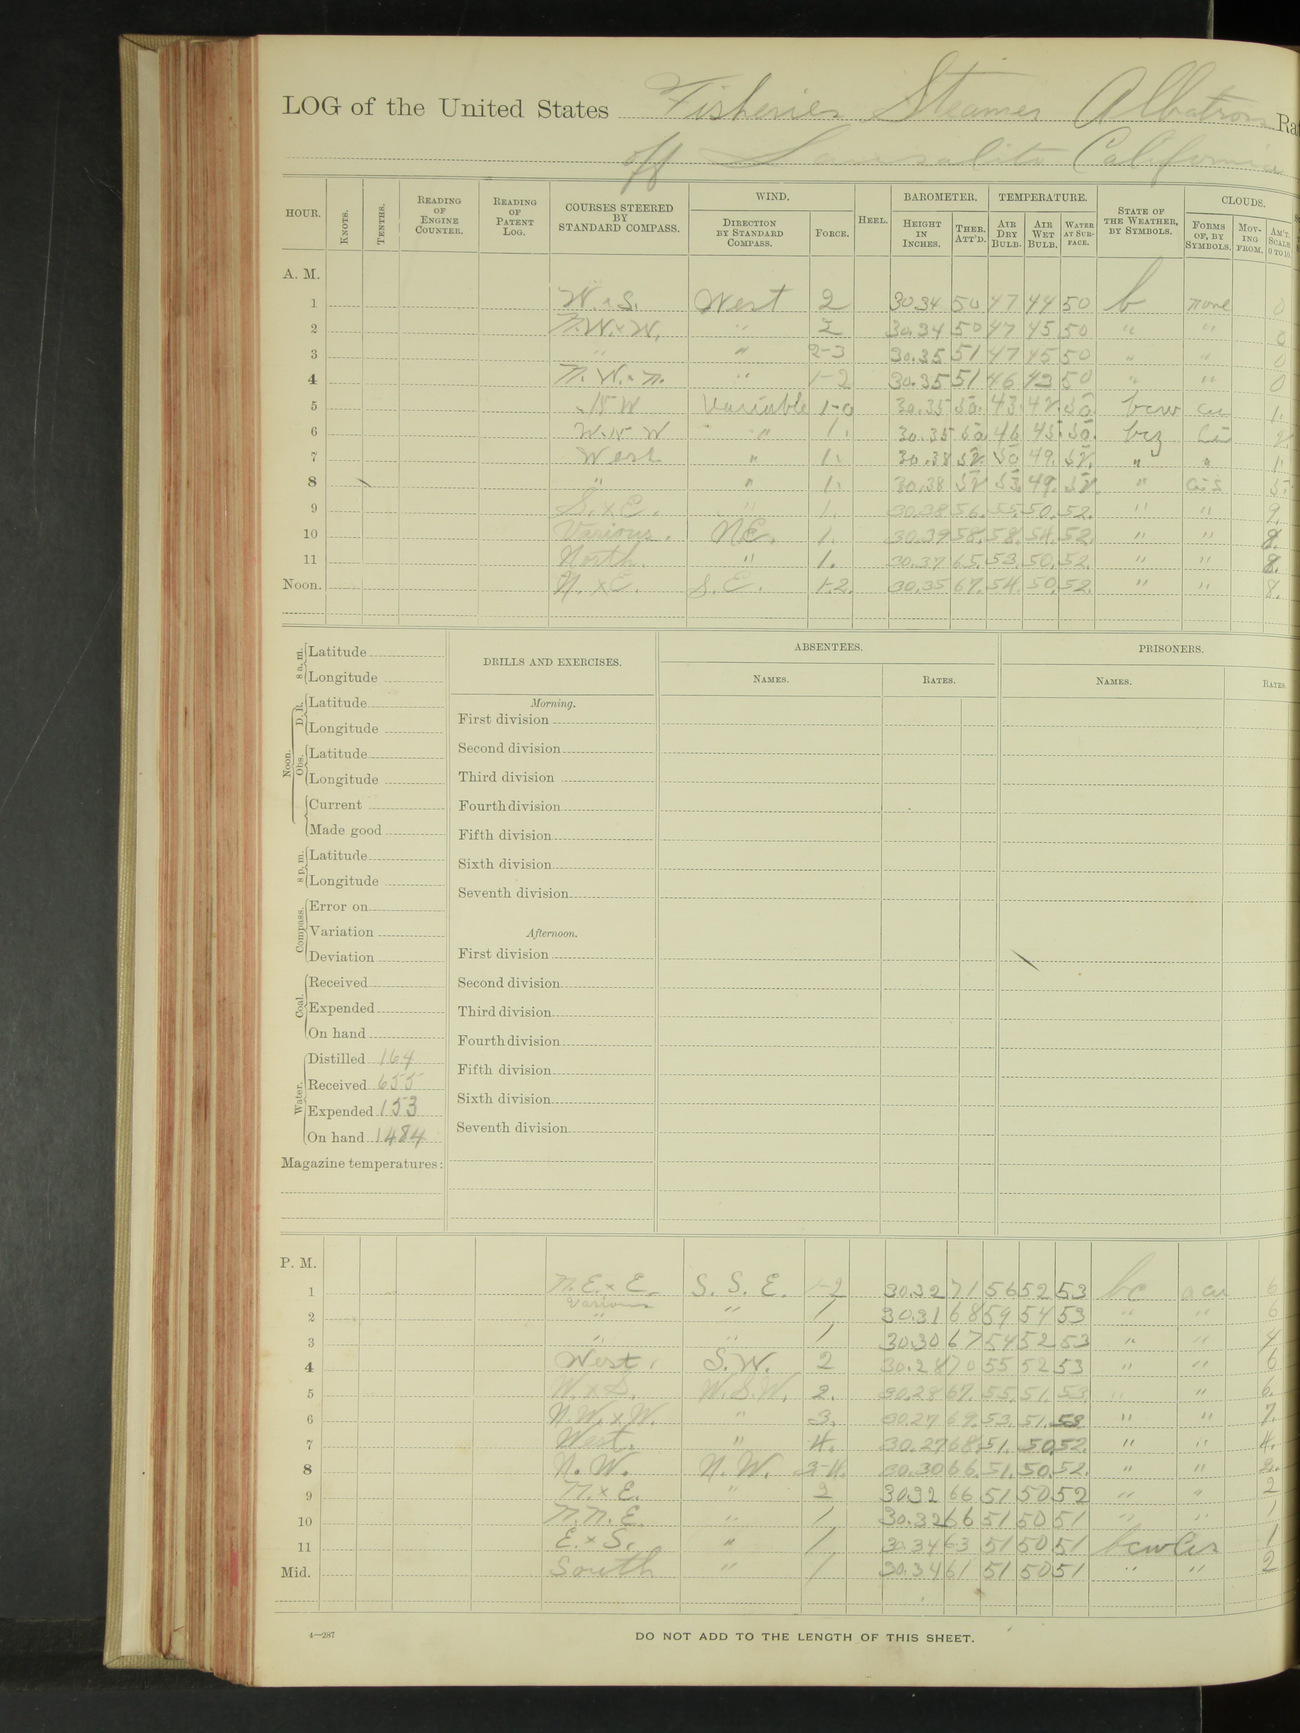 LOG of the United States Fisheries Steamer Albatross Ra
off Sausalito California
HOUR. KNOTS. TENTHS. READING OF ENGINE COUNTER. READING OF PATENT LOG. COURSES STEERED BY STANDARD COMPASS. WIND. DIRECTION BY STANDARD COMPASS. FORCE. HEEL. BAROMETER. HEIGHT IN INCHES. THER. ATT'D. TEMPERATURE. AIR DRY BULB. AIR WET BULB. WATER AT SURFACE. STATE OF THE WEATHER, BY SYMBOLS. CLOUDS. FORMS OF, BY SYMBOLS. MOVING FROM. AM'T. SCALE 0 TO 10.
A. M.
1 W x S. West 2 30.34 50 47 44 50 b none 0
2 N.W. x W. " 2 30.34 50 47 45 50 " " 0
3 " " 2-3 30.35 51 47 45 50 " " 0
4 N.W. x N. " 1-2 30.35 51 46 43 50 " " 0
5 NW Variable 1-0 30.35 50. 43. 42. 50 bcw cu 1.
6 W.N W " " 1. 30.35 50 46 45. 50. bcz Ci
7 West " 1. 30.38 52. 50 49. 52. " " 1.
8 " " 1. 30.38 52 53. 49. 52. " ci-s 5.
9 S. x E. " 1. 30.38 56. 55. 50. 52. " " 9.
10 Various. NE. 1. 30.39 58. 58. 54. 52. " " 8.
11 North. " 1. 30.37 65. 53. 50. 52. " " 8.
Noon. N. x E. S.E. 1-2. 30.35 67. 54. 50. 52. " " 8.
8 a. m. Latitude
Longitude
Noon. D. R. Latitude
Longitude
Obs. Latitude
Longitude
Current
Made good
8 p. m. Latitude
Longitude
Compass. Error on
Variation
Deviation
Coal. Received
Expended
On hand
Water. Distilled 164
Received 655
Expended 153
On hand 1484
Magazine temperatures:
DRILLS AND EXERCISES.
Morning.
First division
Second division
Third division
Fourth division
Fifth division
Sixth division
Seventh division
Afternoon.
First division
Second division
Third division
Fourth division
Fifth division
Sixth division
Seventh division
ABSENTEES.
NAMES. RATES.
PRISONERS.
NAMES. RATES.
P. M.
1 N.E. x E. S. S. E. 1-2 30.32 71 56 52 53 bc cu 6
2 Various " 1 30.31 68 59 54 53 " " 6
3 " " 1 30.30 67 54 52 53 " " 4
4 West. S.W. 2 30.28 70 55 52 53 " " 6
5 W. x S. W.S.W. 2. 30.28 67. 55. 51. 53. " " 6.
6 N.W. x W. " 3. 30.27 69. 53. 51. 53 " " 7.
7 West. " 4. 30.27 68. 51. 50. 52. " " 4.
8 N. W. N. W. 3-4. 30.30 66. 51. 50. 52. " "
9 N. x E. " 2 30.32 66 51 50 52 " " 2
10 N. N. E. " 1 30.32 66 51 50 51 " " 1
11 E. x S. " 1 30.34 63 51 50 51 bcw Cis 1
Mid. South " 1 30.34 61 51 50 51 " " 2
4—287
DO NOT ADD TO THE LENGTH OF THIS SHEET.